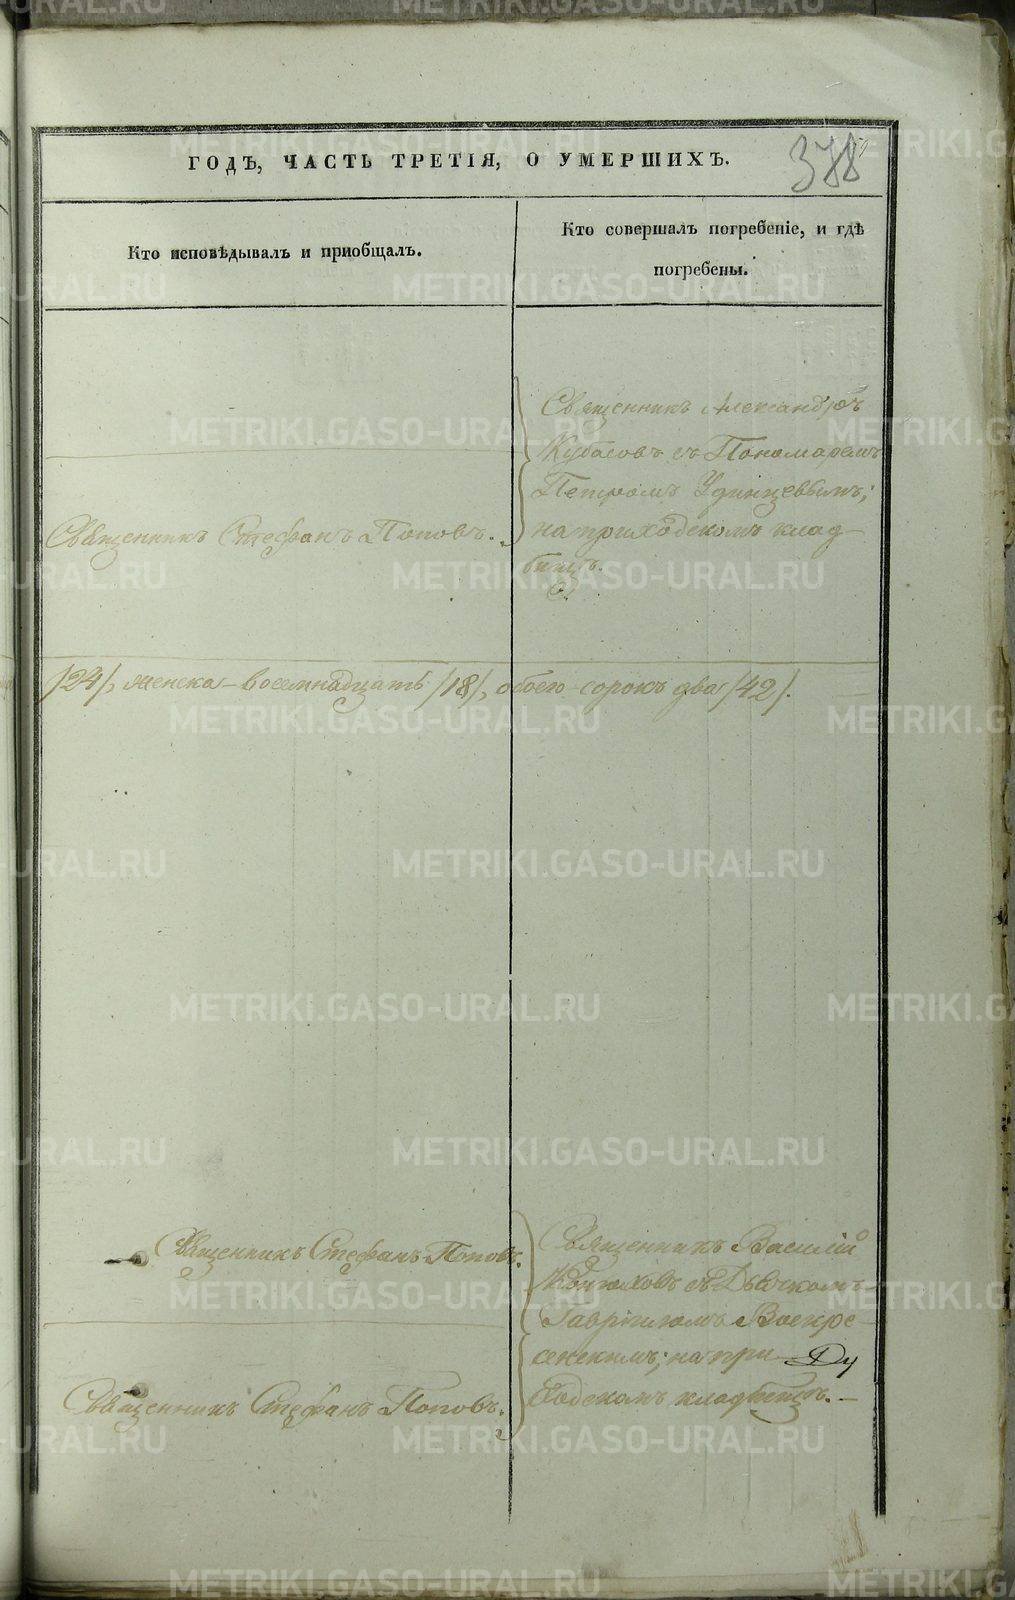 ГОДЪ, ЧАСТЬ ТРЕТІЯ, О УМЕРШИХЪ.
378
Кто исповѣдывалъ и приобщалъ.
Кто совершалъ погребеніе, и гдѣ
погребены.
Священникъ Александръ
Кубасовъ съ Пономаремъ
Петромъ Удинцевымъ;
на приходскомъ клад
бищѣ.
Священникъ Стефанъ Поповъ.
/24/, женска – восемнадцать /18/, обоего – сорокъ два /42/.
Священникъ Стефанъ Поповъ.
Священникъ Василій
съ Дьячкомъ
Гавріиломъ Воскре
сенскимъ; на при
ходскомъ кладбищѣ. –
Священникъ Стефанъ Поповъ.
METRIKI.GASO-URAL.RU